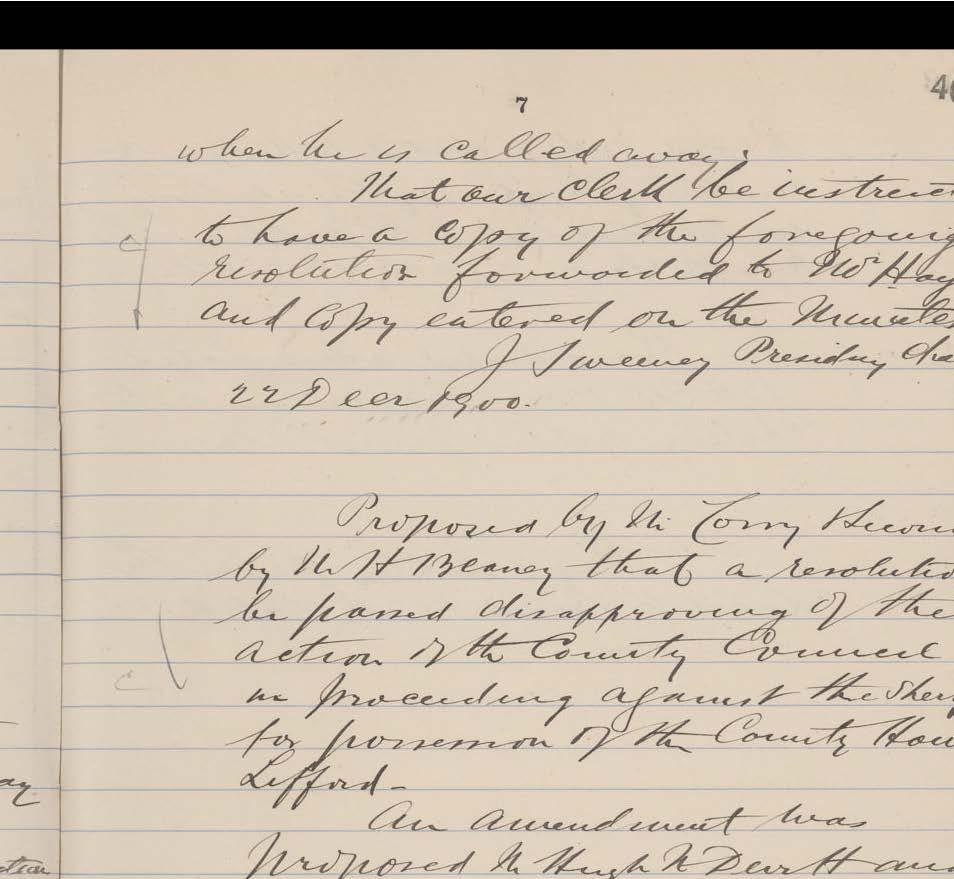 7
when he is called away;
That our Clerk be instruc
to have a Copy of the foregoing
resolution forwarded to Mr Hay
and Copy entered on the Minutes
J Sweeney Presidng Cha
22 Decr 1900.
Proposed by Mr Corry Secon
by Mr H Beaney that a resolutio
be passed disapproving of the
action of the County Council
in proceeding against the Sher
for possession of the County Hou
Lifford -
An Amendment was
proposed Mr Hugh